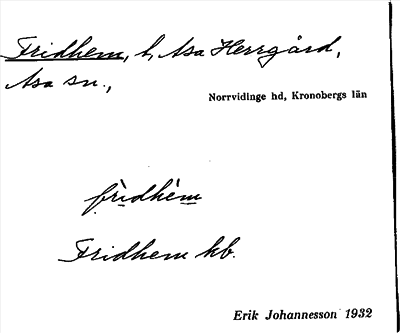 Fridhem, t, Asa Herrgård,
Asa sn.,
Norrvidinge hd, Kronobergs län
frìdhèm
Fridhem kb.
Erik Johannesson 1932